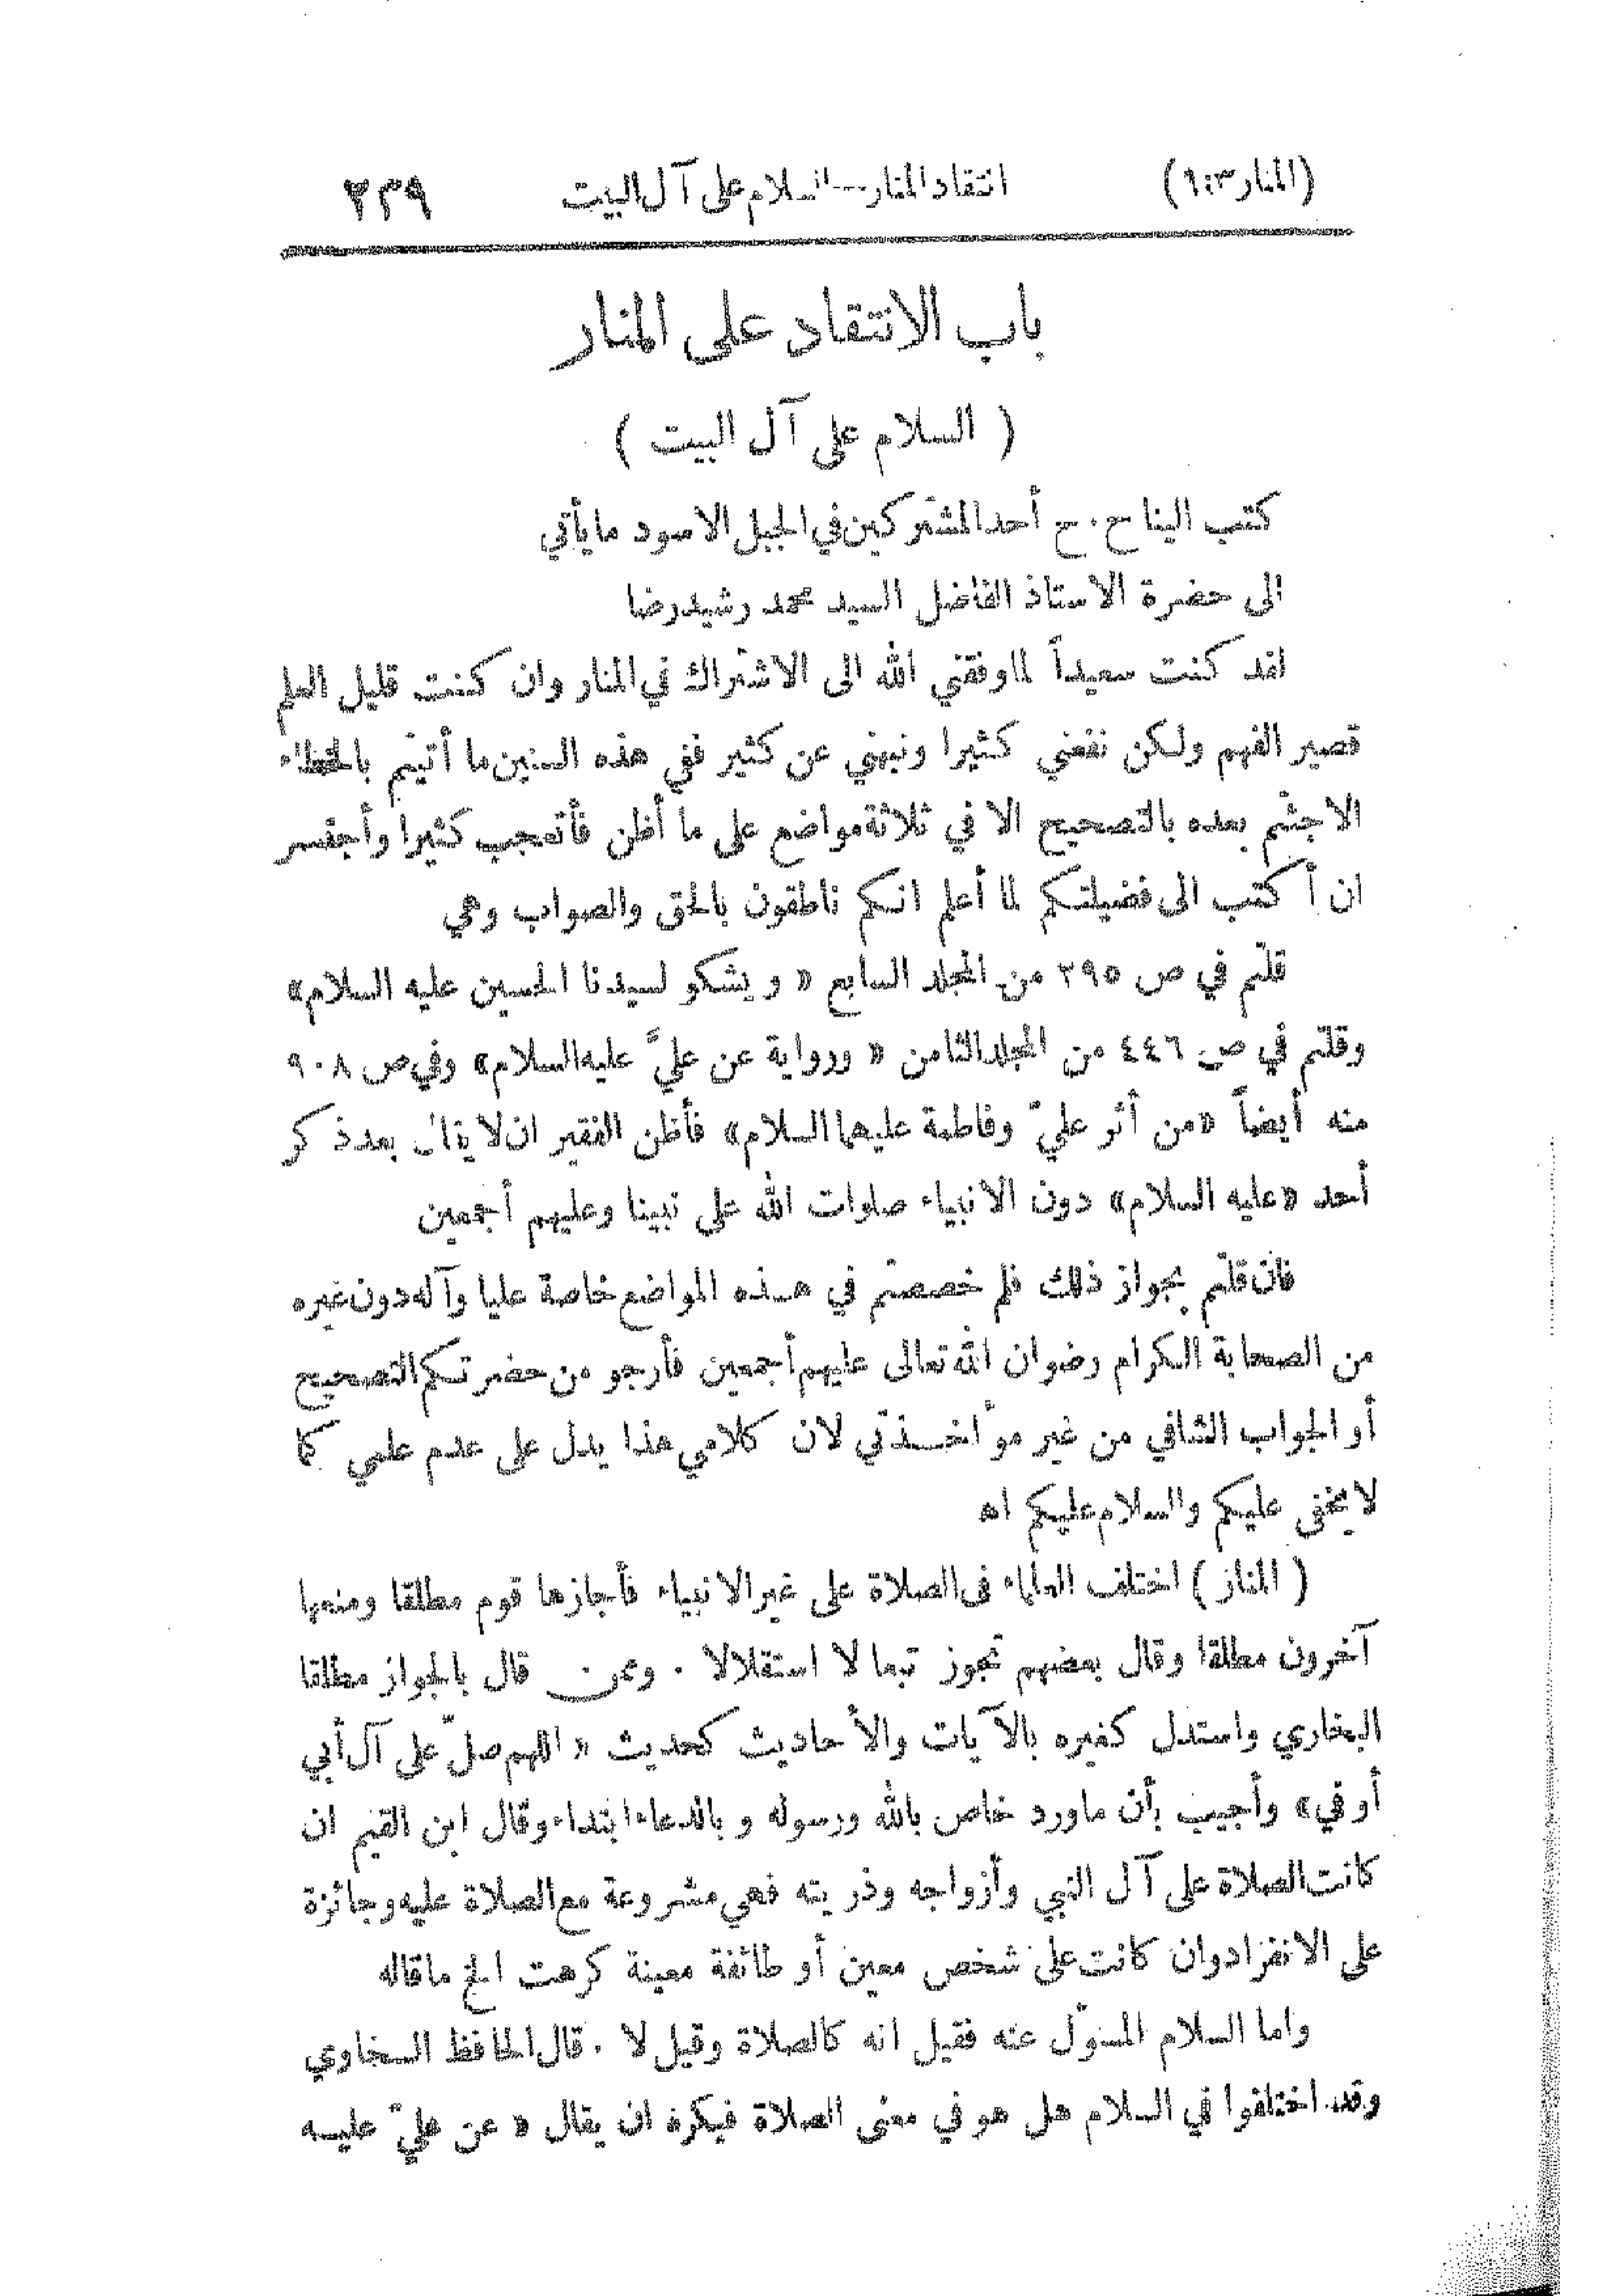 (المنار ٩:٣) انتقاد المنار--السلام على آل البيت ٢٣٩
باب الانتقاد على المنار
( السلام على آل البيت )
كتب الينا ح . ح أحد المشتركين في الجبل الاسود ما يأتي
الى حضرة الاستاذ الفاضل السيد محمد رشيد رضا
لقد كنت سعيداً لما وفقني الله الى الاشتراك في المنار وان كنت قليل العلم
قصير الفهم ولكن نفعني كثيرا ونبهني عن كثير ففي هذه السنين ما أتيتم بالخطاء
الا جئتم بعده بالتصحيح الا في ثلاثة مواضع على ما أظن فأتعجب كثيرا وأجتسر
ان أكتب الى فضيلتكم لما أعلم انكم ناطقون بالحق والصواب وهي
قلتم في ص ٢٩٥ من المجلد السابع « ويشكو لسيدنا الحسين عليه السلام»
وقلتم في ص ٤٤٦ من المجلد الثامن « ورواية عن عليّ عليه السلام» وفي ص ٩٠٨
منه أيضاً «من أثر عليّ وفاطمة عليهما السلام» فأظن الفقير ان لا يقال بعد ذكر
أحد «عليه السلام» دون الانبياء صلوات الله على نبينا وعليهم أجمعين
فان قلتم بجواز ذلك فلم خصصتم في هذه المواضع خاصة عليا وآله دون غيره
من الصحابة الكرام رضوان الله تعالى عليهم أجمعين فأرجو من حضرتكم التصحيح
أو الجواب الشافي من غير مؤاخذتي لان كلامي هذا يدل على عدم علمي كما
لا يخفى عليكم والسلام عليكم اه
( المنار ) اختلف العلماء في الصلاة على غير الانبياء فأجازها قوم مطلقا ومنعها
آخرون مطلقا وقال بعضهم تجوز تبعا لا استقلالا . وممن قال بالجواز مطلقا
البخاري واستدل كغيره بالآيات والأحاديث كحديث « اللهم صلّ على آل أبي
أوفي» وأجيب بأن ماورد خاص بالله ورسوله وبالدعاء ابتداء وقال ابن القيم ان
كانت الصلاة على آل النبي وأزواجه وذريته فهي مشروعة مع الصلاة عليه وجائزة
على الانفراد وان كانت على شخص معين أو طائفة معينة كرهت الخ ماقاله
واما السلام المسؤل عنه فقيل انه كالصلاة وقيل لا . قال الحافظ السخاوي
وقد اختلفوا في السلام هل هو في معنى الصلاة فيكره ان يقال « عن عليّ عليه